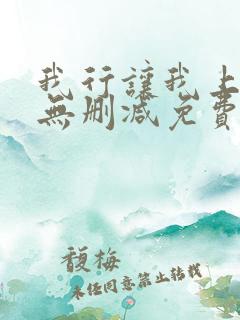 我行讓我上
無刪減免費
馥梅
未经同意禁止转载